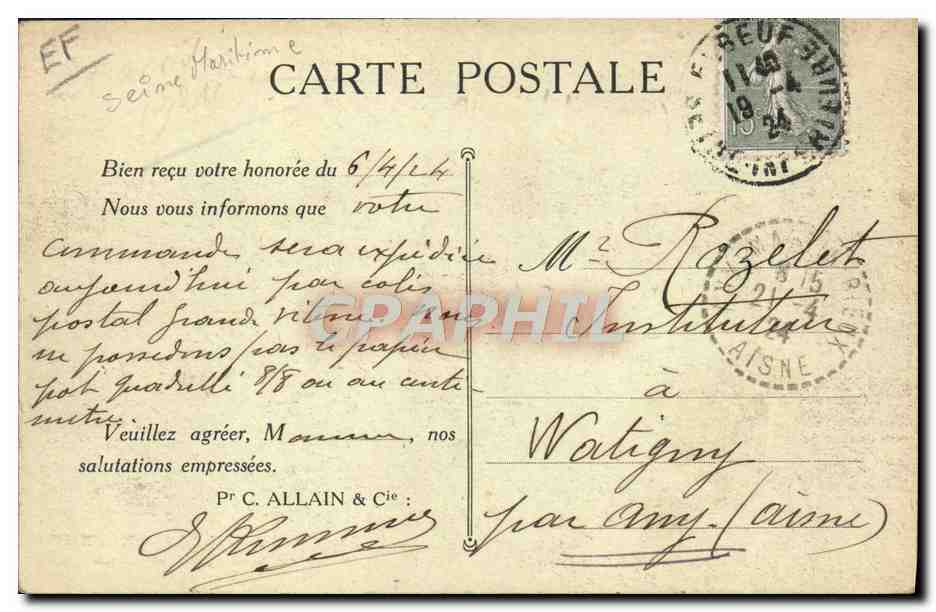 EF
Seine Maritime
CARTE POSTALE
Bien reçu votre honorée du 6/4/24
Nous vous informons que votre
commande sera expédiée
aujourd'hui par colis
postal grande vitesse. Nous
ne possedons pas le papier
pot quadrillé 8/8 ou au centi-
metre.
Veuillez agréer, Monsieur, nos
salutations empressées.
Pr C. ALLAIN & Cie :
ELBEUF
11 45
19 - 4
24
SEINE-INFERIEURE
15c
Mr Rozelet
Instituteur
à
Watigny
par Any. (aisne)
15
21 - 4
24
AISNE
CPAPHIL